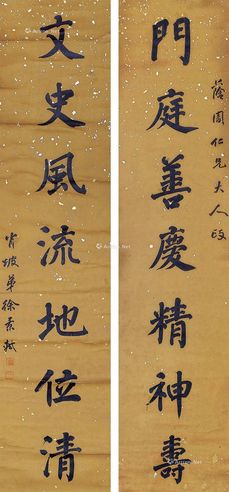 門庭善慶精神壽
蔭周仁兄大人政
文史風流地位清
肖坡弟徐景軾